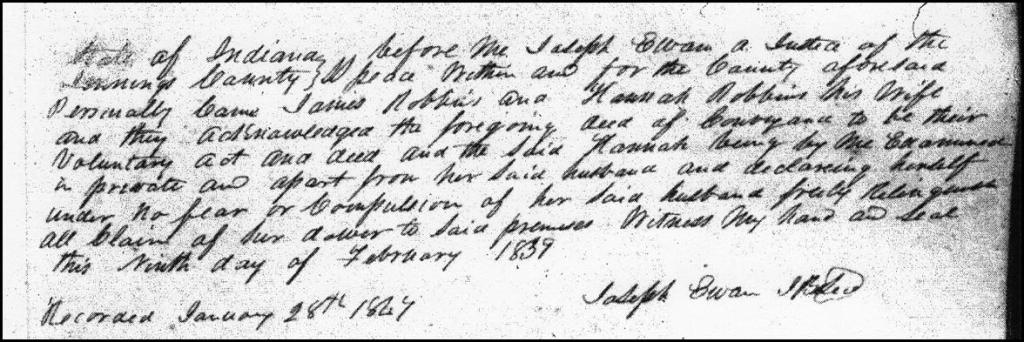 State of Indiana } before me Joseph Ewan a Justice of the
Jennings County } peace within and for the County aforesaid
Personally Came James Robbins and Hannah Robbins his Wife
and they acknowledged the foregoing deed of Conveyance to be their
Voluntary act and deed and the said Hannah being by me Examined
in private and apart from her said husband and declareing herself
under no fear or Compulsion of her said husband freely Relinquish
all Claim of her dower to said premises Witness My hand and seal
this Ninth day of February 1839
Joseph Ewan
Recorded January 28th 1847